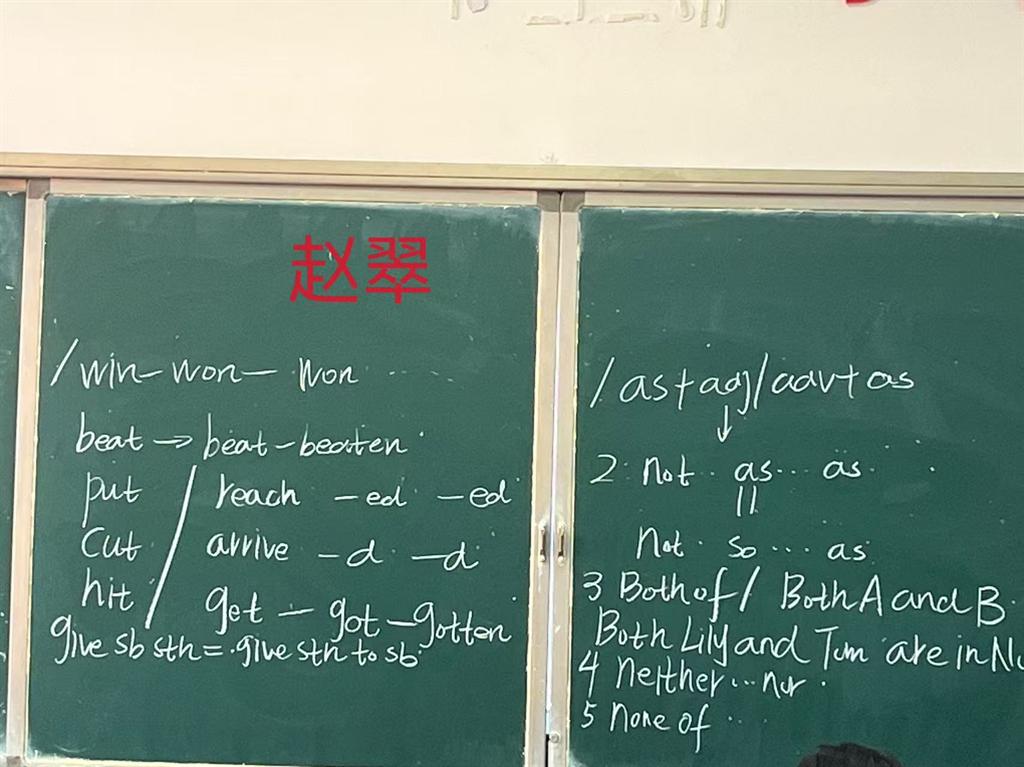 赵翠
/ win - won - won
beat → beat - beaten
put / reach -ed -ed
cut / arrive -d -d
hit / get - got - gotten
give sb sth = give sth to sb
1. as + adj/adv + as
↓
2 not as... as
||
not so... as
3 Both of / Both A and B
Both Lily and Tom are in
4 neither...nor
5 none of...